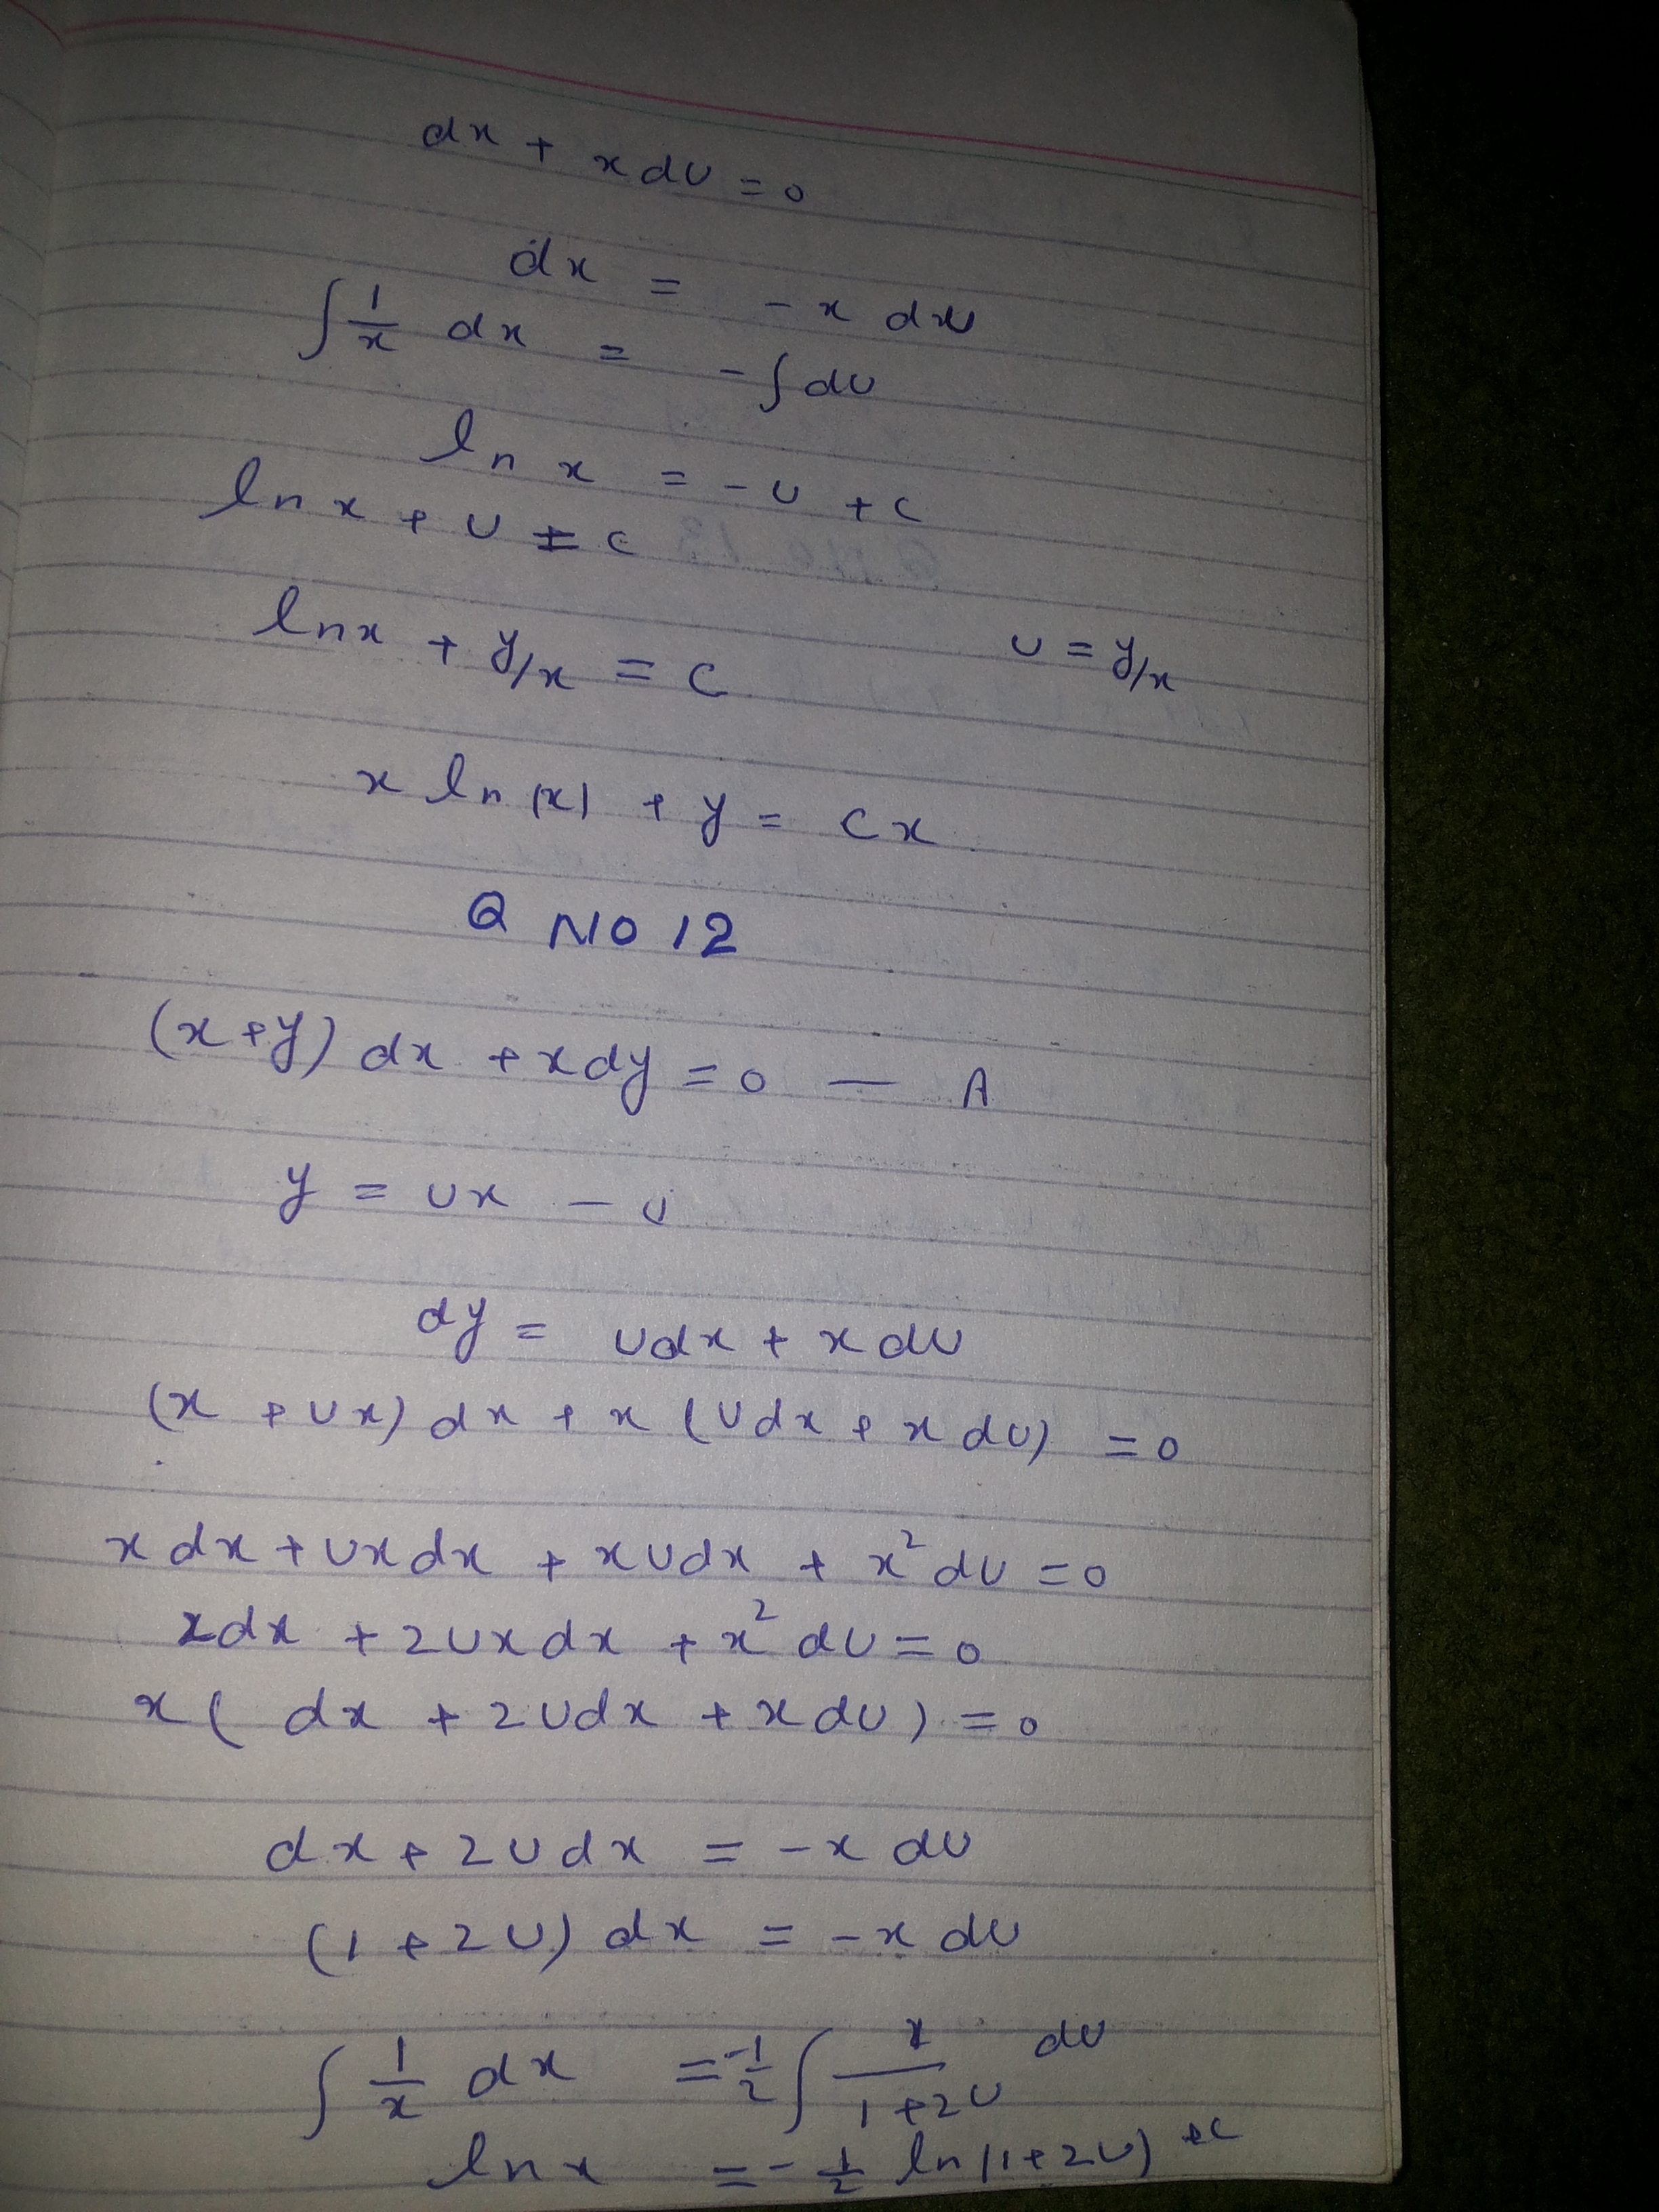 dx + x dU = 0
dx = - x dU
∫ 1/x dx = - ∫ dU
ln x = - U + C
ln x + U = C
ln x + y/x = C U = y/x
x ln |x| + y = C x
Q NO 12
(x + y) dx + x dy = 0 — A
y = Ux — U
dy = U dx + x dU
(x + Ux) dx + x (U dx + x dU) = 0
x dx + Ux dx + xU dx + x² dU = 0
x dx + 2Ux dx + x² dU = 0
x ( dx + 2U dx + x dU ) = 0
dx + 2U dx = - x dU
(1 + 2U) dx = - x dU
∫ 1/x dx = -1/2 ∫ 2/(1+2U) dU
ln x = - 1/2 ln (1 + 2U) + C